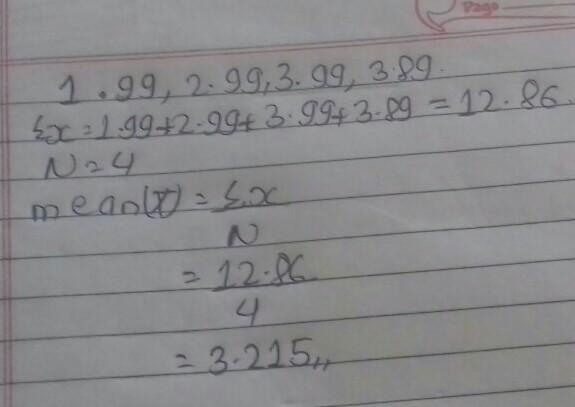 Page
1.99, 2.99, 3.99, 3.89.
Σx = 1.99+2.99+3.99+3.89 = 12.86
N = 4
mean(x̄) = Σx
N
= 12.86
4
= 3.215,,